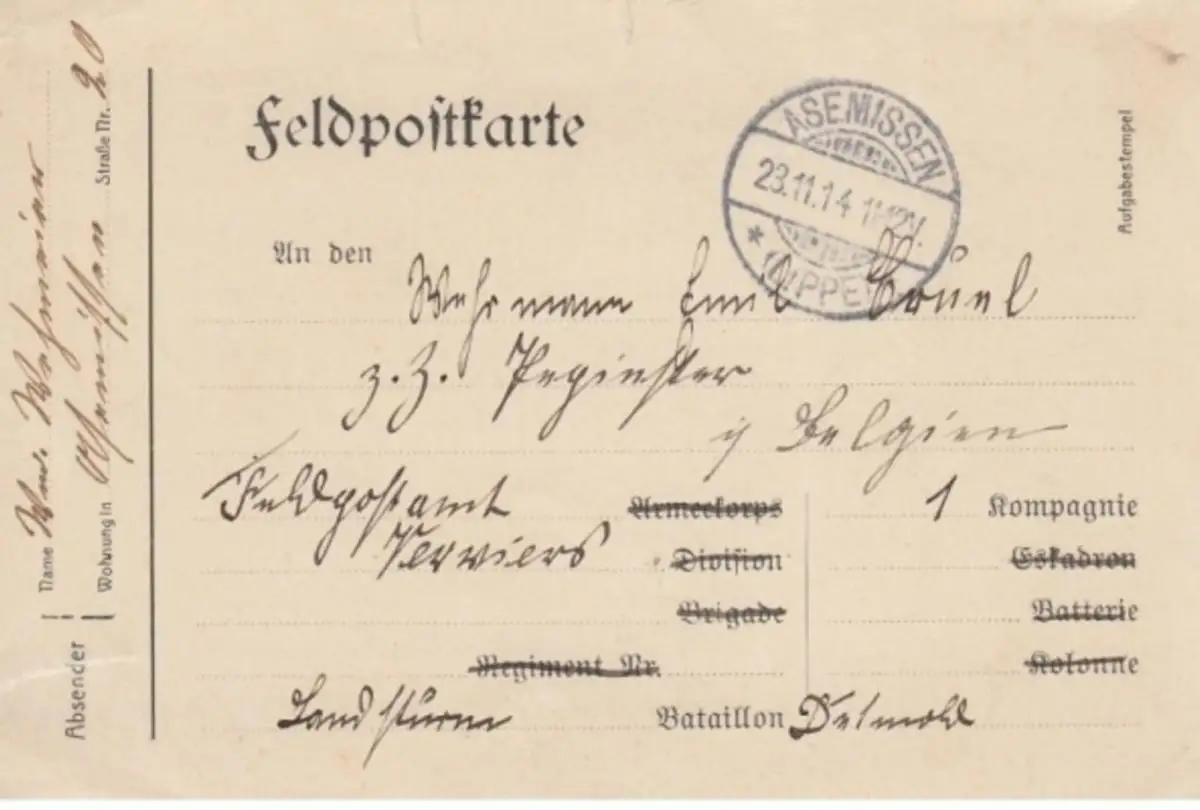 Feldpostkarte
Aufgabestempel
ASEMISSEN
23.11.14 11-12V.
* (LIPPE)
An den
Wehrmann Emil
z. Z. Pepinster
in Belgien
Feldpostamt
Verviers
Armeekorps
Division
Brigade
Regiment Nr.
Landsturm Bataillon Detmold
1 Kompagnie
Eskadron
Batterie
Kolonne
Absender
Name
Wohnung in Asemissen Straße Nr. 20